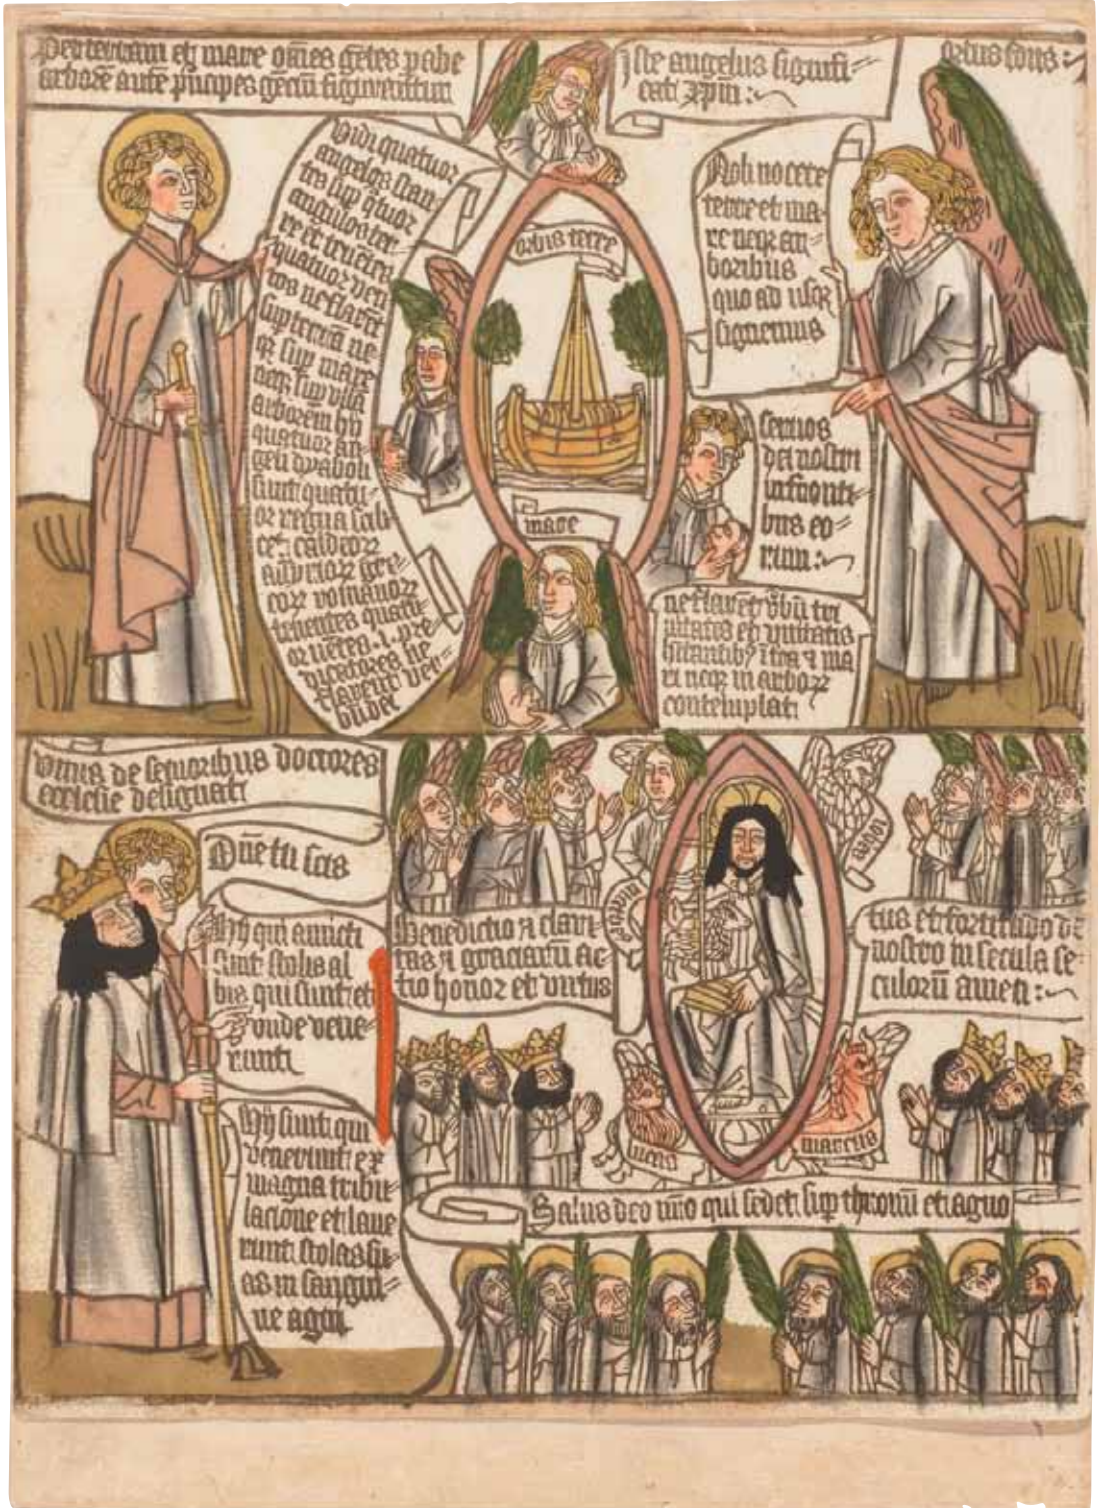 Per terram et mare om̄es gētes p abe
arborē autē p̄ncipes gētiū figurantur
Iste angelus signifi=
cat xp̄m :~
ortus solis :~
Vidi quatuor
angelos stan-
tes sup q̄tuor
angulos ter-
re et tenētes
quatuor ven
tos ne flarēt
sup terrā ne-
q3 sup mare
neq3 sup ullā
arborem hij
quatuor an-
geli dyaboli
sunt quatu-
or regna scili-
cet caldeoꝝ
assyrioꝝ gre-
coꝝ romanoꝝ
tenentes quatu-
or uētos .i. pre-
dicatores ne
flarent ver-
bū dei
orbis terre
mare
Nolite nocere
terre et ma-
re neq3 ar=
boribus
quo ad usq3
signemus
seruos
dei nostri
in fronti=
bus eo=
rum :~
ne flaret v̄bū tri
nitatis et unitatis
hitantibꝫ ī tra ⁊ ma
ri neq3 in arboꝝ
contemplati
Vnus de senioribus doctores
ecclesie designat
Dn̄e tu scis
Hij qui amicti
sunt stolis al
bis qui sunt et
vnde vene=
runt
Hij sunt qui
venerunt ex
magna tribu=
lacione et laue
runt stolas su=
as in sangui=
ne agni
Benedictio ⁊ clari-
tas ⁊ graciarū ac
tio honor et virtus
tus et fortitudo dō
nostro in secula se=
culorū amen :~
lucas
marcus
Salus deo nr̄o qui sedet sup thronū et agno